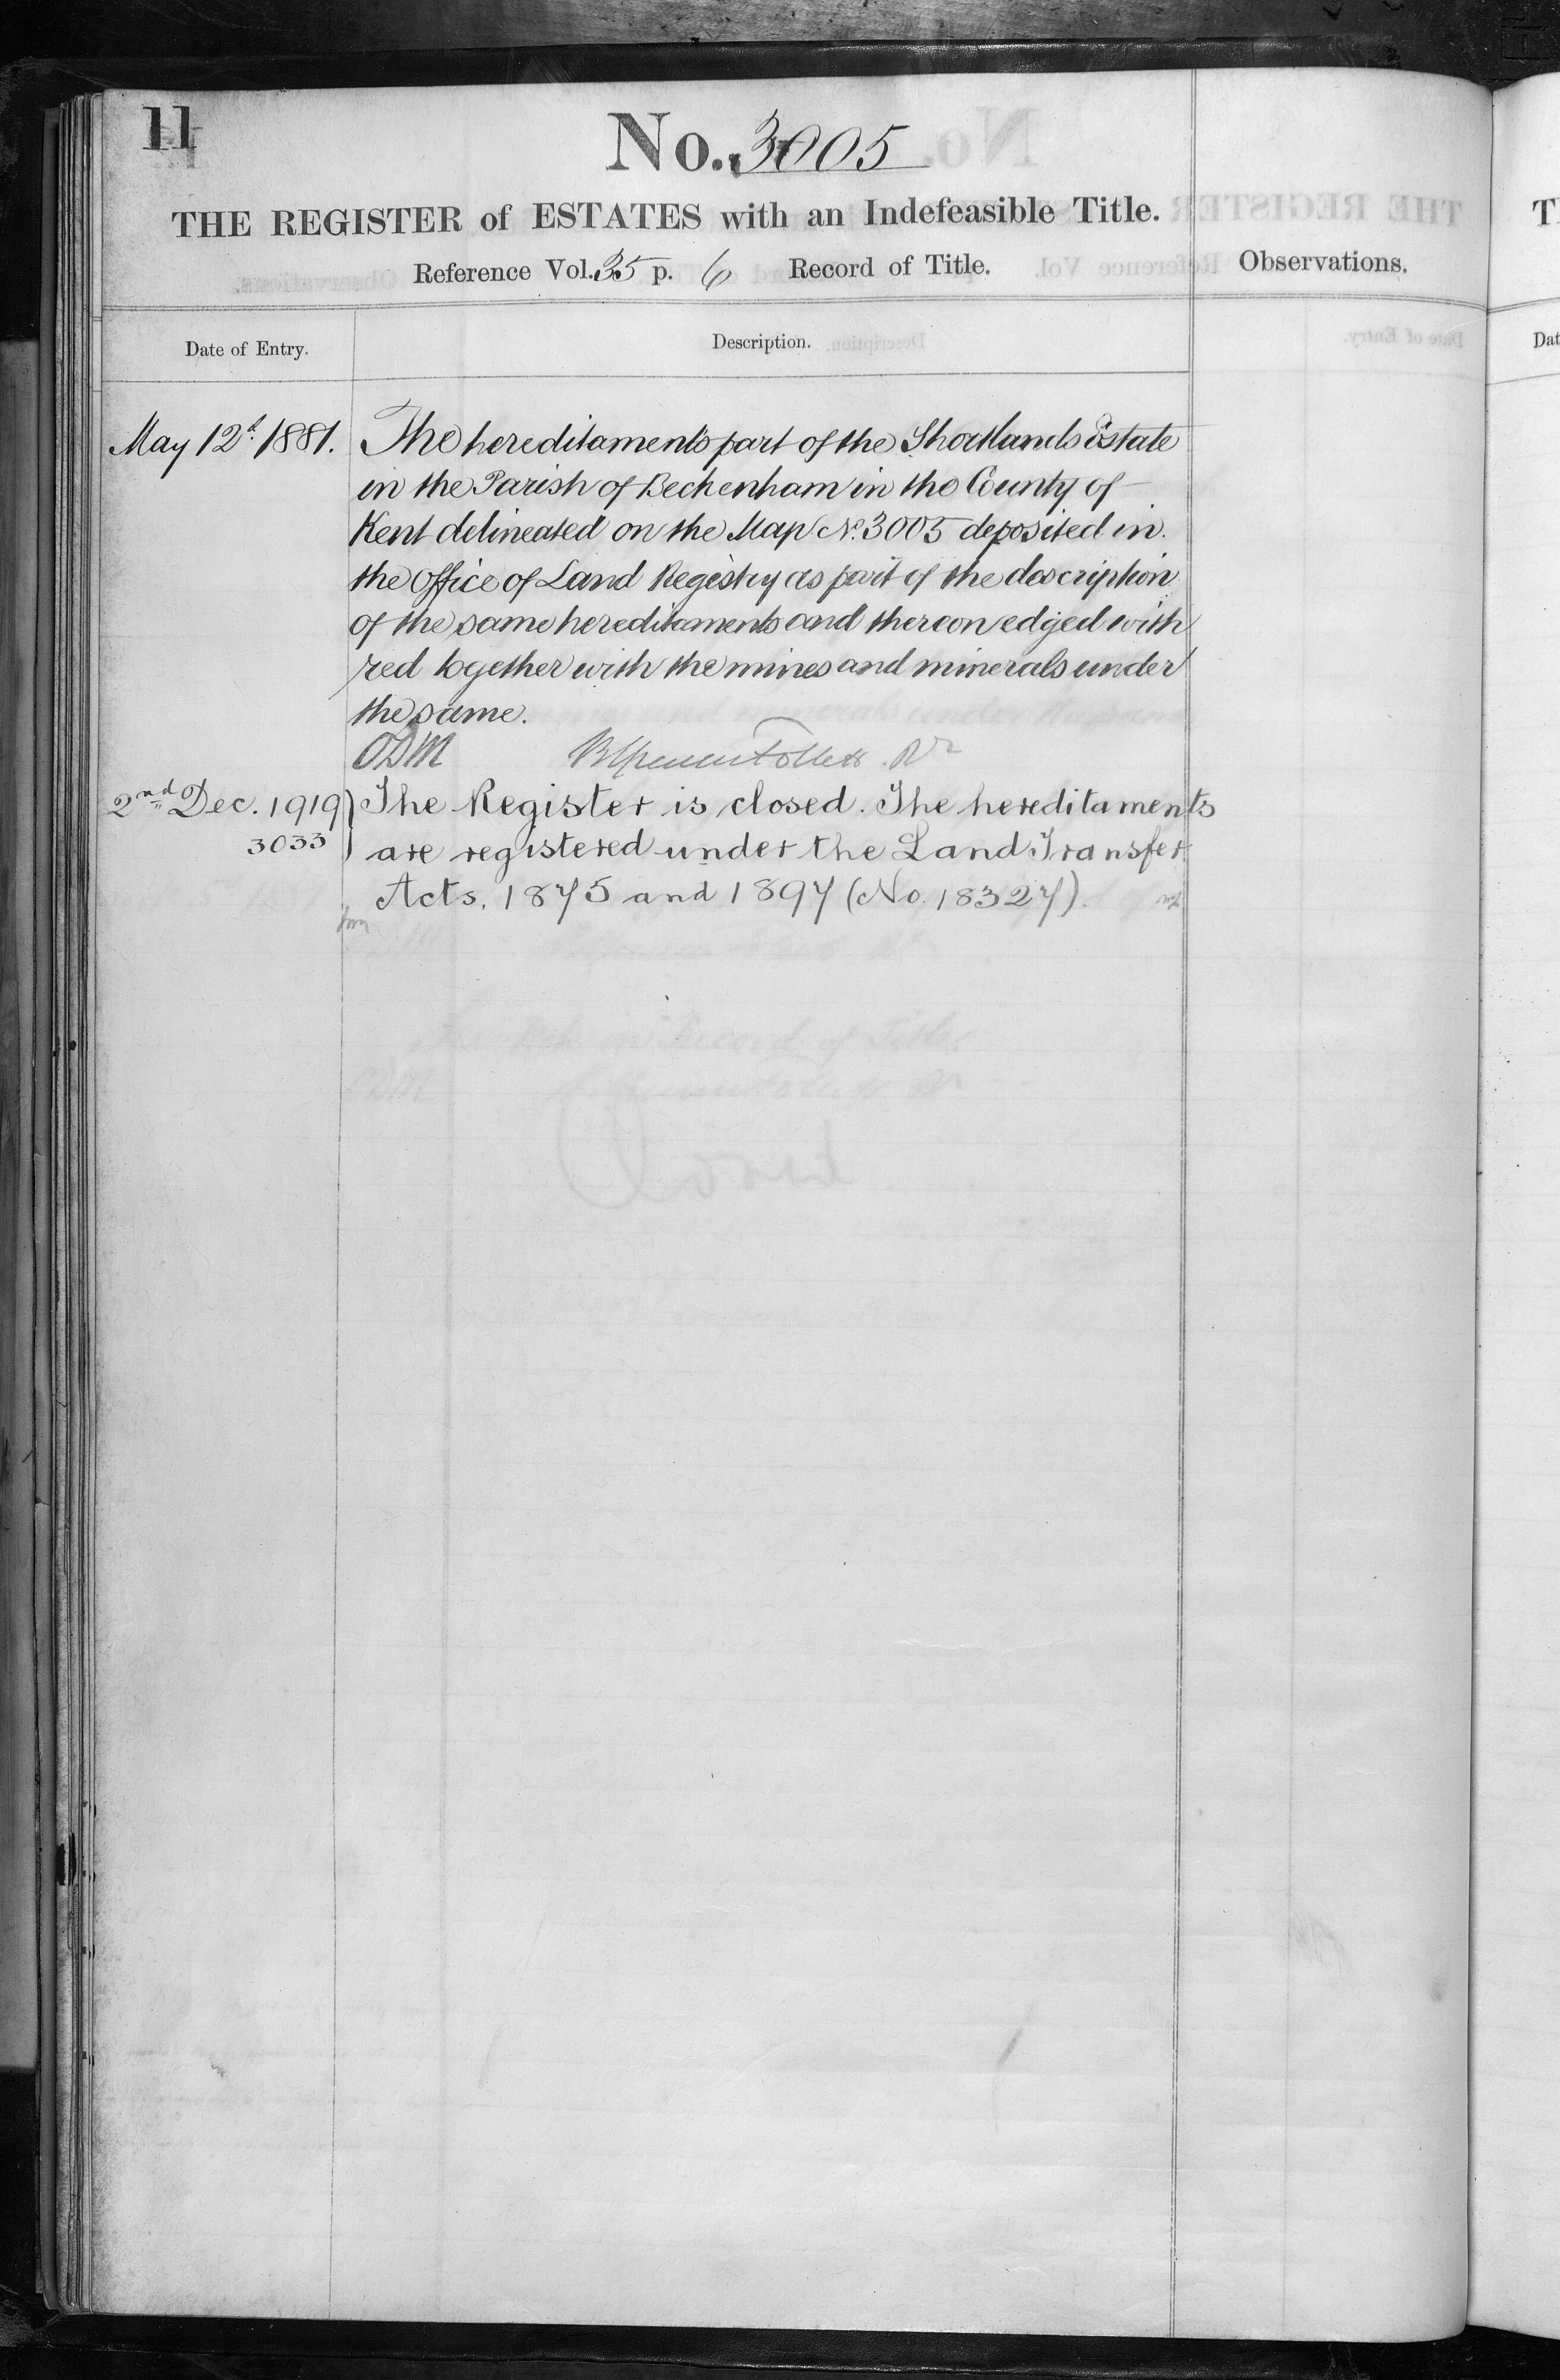 11
No. 3005
THE REGISTER of ESTATES with an Indefeasible Title.
Reference Vol. 35 p. 6 Record of Title.
Observations.
Date of Entry.
Description.
May 12th 1881.
The hereditaments part of the Shortlands Estate
in the Parish of Beckenham in the County of
Kent delineated on the Map No. 3005 deposited in
the Office of Land Registry as part of the description
of the same hereditaments and thereon edged with
red together with the mines and minerals under
the same.
ODM Follett Rr
2nd Dec. 1919
3033
The Register is closed. The hereditaments
are registered under the Land Transfer
Acts, 1875 and 1897 (No. 18327).